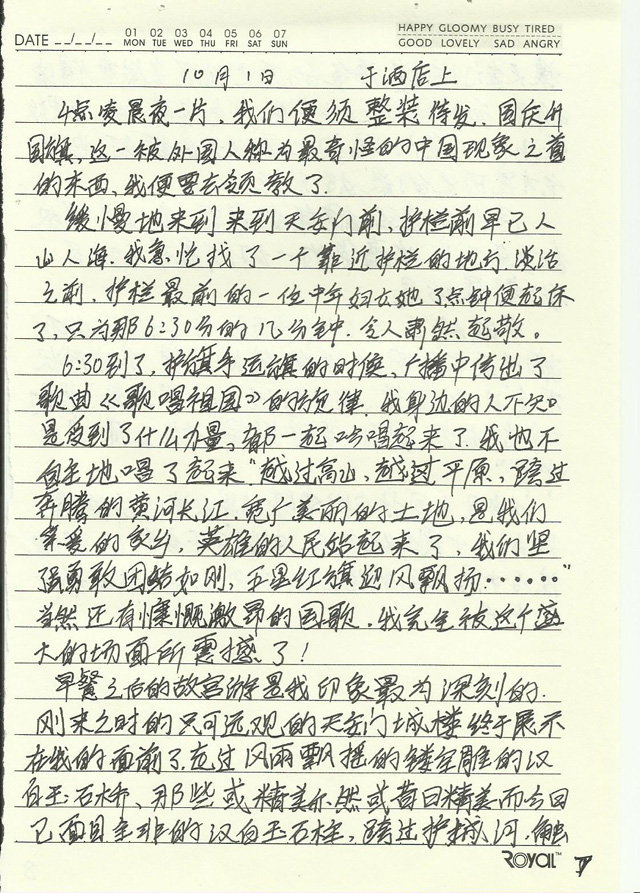 HAPPY GLOOMY BUSY TIRED
DATE __/__/__ 01 MON 02 TUE 03 WED 04 THU 05 FRI 06 SAT 07 SUN GOOD LOVELY SAD ANGRY
10月1日 于酒店上
4点凌晨夜一片，我们便须整装待发。国庆升
国旗，这一被外国人称为最奇怪的中国现象之首
的东西，我便要去领教了。
缓慢地来到来到天安门前，护栏前早已人
山人海。我急忙找了一个靠近护栏的地方。谈话
之前，护栏最前的一位中年妇女她了点钟便起床
了，只为那6:30分的几分钟。令人肃然起敬。
6:30到了，护旗手运旗的时候，广播中传出了
歌曲《歌唱祖国》的旋律。我身边的人不知
是受到了什么力量，都一起哼唱起来了。我也不
自主地唱了起来“越过高山，越过平原，跨过
奔腾的黄河长江，宽广美丽的土地，是我们
亲爱的家乡，英雄的人民站起来了，我们坚
强勇敢团结如刚，五星红旗迎风飘扬……”
当然还有慷慨激昂的国歌。我完全被这个盛
大的场面所震撼了！
早餐之后的故宫游是我印象最为深刻的。
刚来之时的只可远观的天安门城楼终于展示
在我的面前了。在过风雨飘摇的镂空雕的汉
白玉石桥、那些或精美亦然或昔日精美而今日
已面目全非的汉白玉石柱，跨过护城河，触
ROYAL™ 7